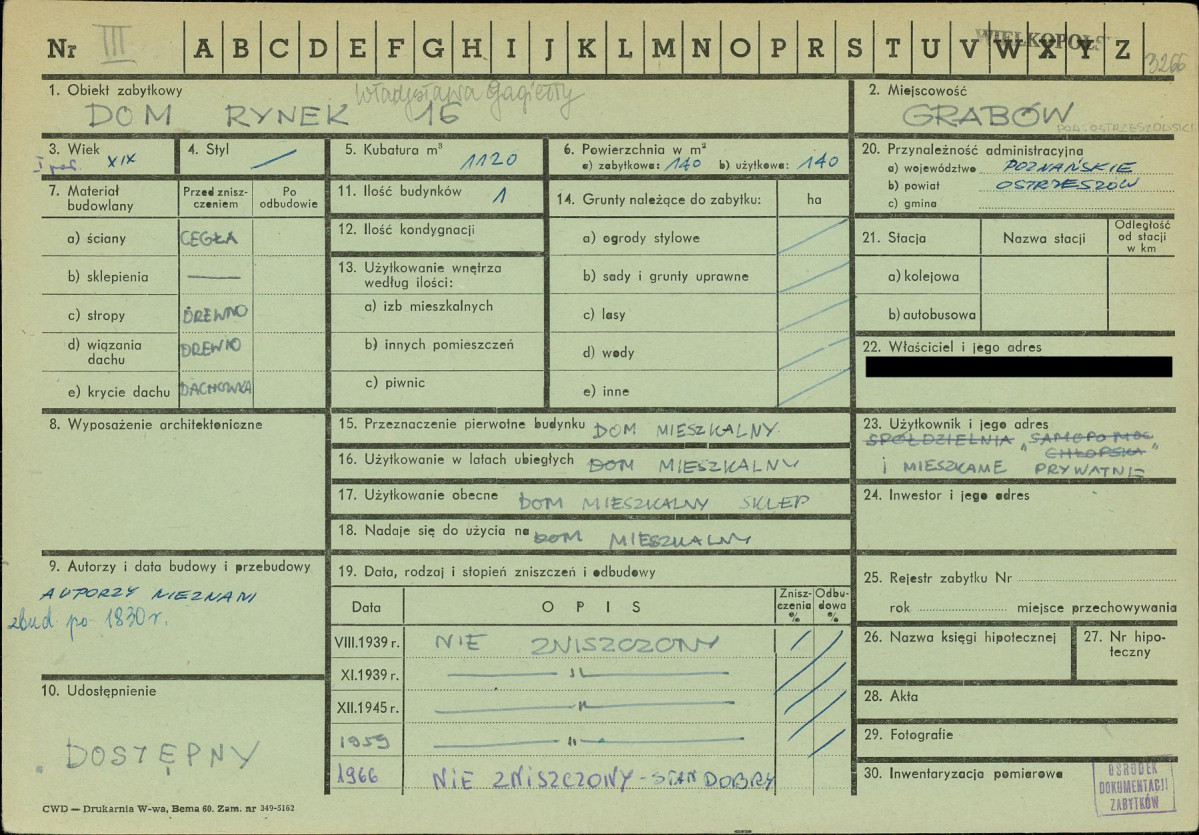 Nr III A B C D E F G H I J K L M N O P R S T U V W X Y Z
WIELKOPOLS
3266
1. Obiekt zabytkowy
Władysława Jagiełły
DOM RYNEK 16
2. Miejscowość
GRABÓW
POW. OSTRZESZOWSKI
3. Wiek
I poł. XIX
4. Styl
5. Kubatura m³ 1120
6. Powierzchnia w m²
a) zabytkowa: 140 b) użytkowa: 140
20. Przynależność administracyjna
a) województwo POZNAŃSKIE
b) powiat OSTRZESZÓW
c) gmina
7. Materiał budowlany
Przed zniszczeniem
Po odbudowie
a) ściany CEGŁA
b) sklepienia —
c) stropy DREWNO
d) wiązania dachu DREWNO
e) krycie dachu DACHÓWKA
11. Ilość budynków 1
12. Ilość kondygnacji
13. Użytkowanie wnętrza
według ilości:
a) izb mieszkalnych
b) innych pomieszczeń
c) piwnic
14. Grunty należące do zabytku: ha
a) ogrody stylowe
b) sady i grunty uprawne
c) lasy
d) wody
e) inne
21. Stacja
Nazwa stacji
Odległość od stacji w km
a) kolejowa
b) autobusowa
22. Właściciel i jego adres
8. Wyposażenie architektoniczne
15. Przeznaczenie pierwotne budynku DOM MIESZKALNY
16. Użytkowanie w latach ubiegłych DOM MIESZKALNY
17. Użytkowanie obecne DOM MIESZKALNY SKLEP
18. Nadaje się do użycia na DOM MIESZKALNY
23. Użytkownik i jego adres
SPÓŁDZIELNIA „SAMOPOMOC
CHŁOPSKA"
I MIESZKANIE PRYWATNE
24. Inwestor i jego adres
9. Autorzy i data budowy i przebudowy
AUTORZY NIEZNANI
zbud. po 1830 r.
19. Data, rodzaj i stopień zniszczeń i odbudowy
Data
OPIS
Zniszczenia %
Odbudowa %
VIII.1939 r. NIE ZNISZCZONY
XI.1939 r. — " —
XII.1945 r. — " —
1959 — " —
1966 NIE ZNISZCZONY - STAN DOBRY
10. Udostępnienie
DOSTĘPNY
25. Rejestr zabytku Nr
rok miejsce przechowywania
26. Nazwa księgi hipotecznej
27. Nr hipoteczny
28. Akta
29. Fotografie
30. Inwentaryzacja pomiarowa
OŚRODEK
DOKUMENTACJI
ZABYTKÓW
CWD — Drukarnia W-wa, Bema 60. Zam. nr 349-5162